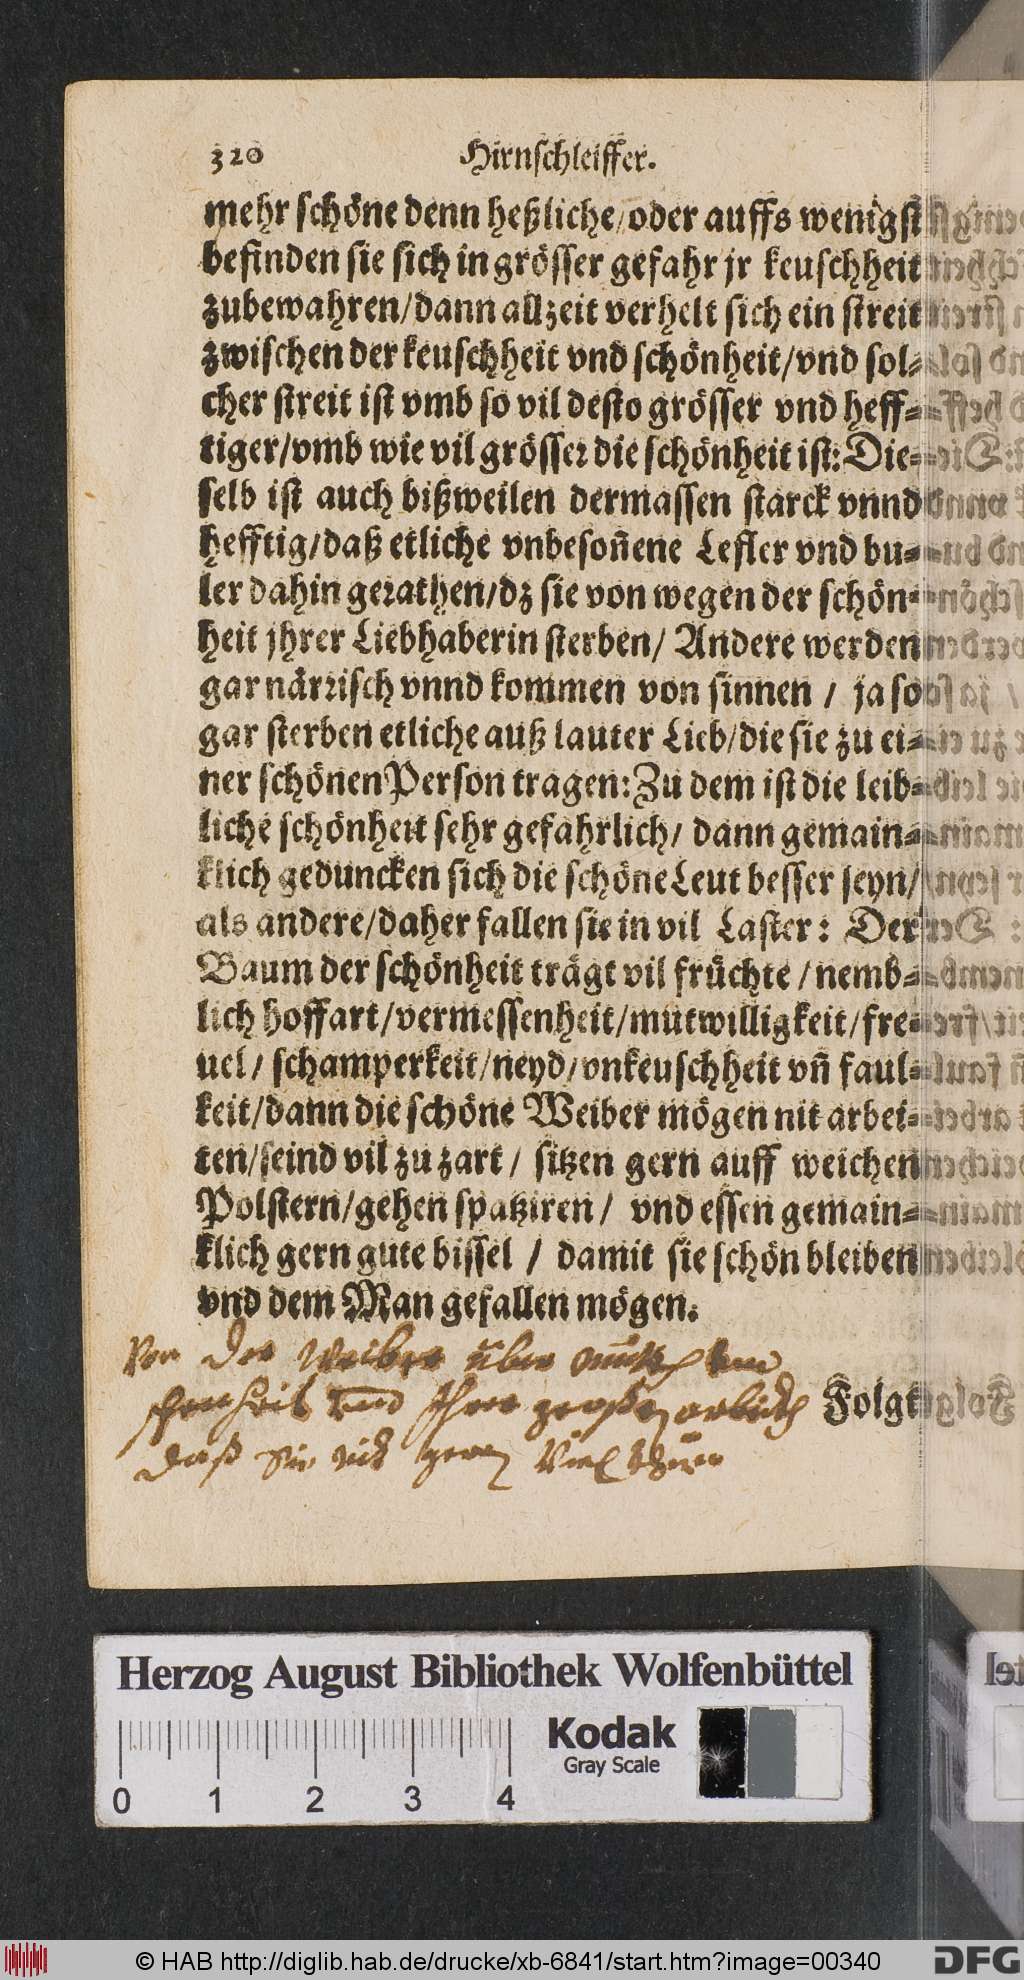 320 Hirnschleiffer.
mehr schöne denn heßliche/oder auffs wenigst
befinden sie sich in grösser gefahr jr keuschheit
zubewahren/dann allzeit verhelt sich ein streit
zwischen der keuschheit vnd schönheit/vnd sol-
cher streit ist vmb so vil desto grösser vnd heff-
tiger/vmb wie vil grösser die schönheit ist: Die-
selb ist auch bißweilen dermassen starck vnnd
hefftig/daß etliche vnbesoñene Lefler vnd bu-
ler dahin gerathen/dz sie von wegen der schön-
heit jhrer Liebhaberin sterben/ Andere werden
gar närrisch vnnd kommen von sinnen / ja so
gar sterben etliche auß lauter Lieb/die sie zu ei-
ner schönen Person tragen: Zu dem ist die leib-
liche schönheit sehr gefahrlich/ dann gemain-
klich geduncken sich die schöne Leut besser seyn/
als andere/daher fallen sie in vil Laster: Der
Baum der schönheit trägt vil früchte /nemb-
lich hoffart/vermessenheit/mutwilligkeit/fre-
uel/ schamperkeit/neyd/vnkeuschheit vñ faul-
keit/dann die schöne Weiber mögen nit arbei-
ten/seind vil zu zart / sitzen gern auff weichen
Polstern/gehen spatziren / vnd essen gemain-
klich gern gute bissel / damit sie schön bleiben
vnd dem Man gefallen mögen.
Von der Weiber über
vnd Ihre
daß Sie nit gern Viel
Folgt
Herzog August Bibliothek Wolfenbüttel
Kodak
Gray Scale
0 1 2 3 4
© HAB http://diglib.hab.de/drucke/xb-6841/start.htm?image=00340
DFG